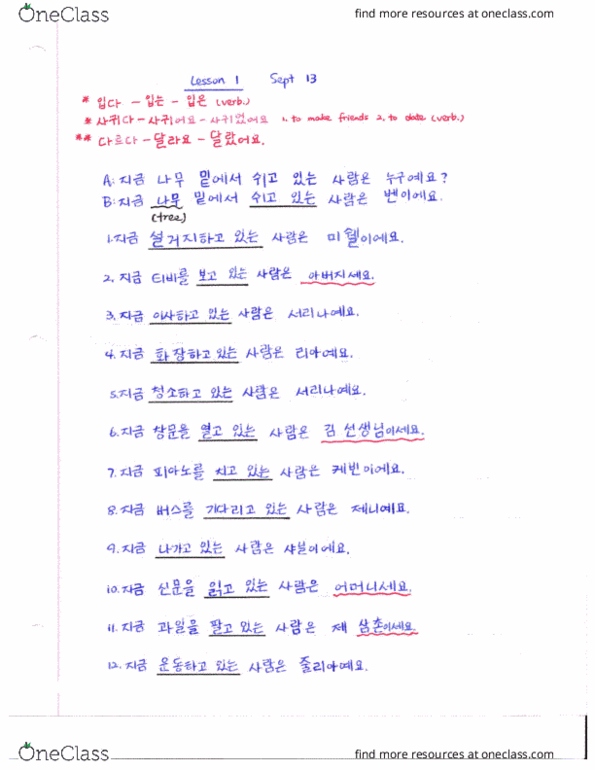 OneClass
find more resources at oneclass.com
Lesson 1 Sept 13
* 입다 - 입는 - 입은 (verb.)
* 사귀다 - 사귀어요 - 사귀었어요 1. to make friends 2. to date (verb.)
** 다르다 - 달라요 - 달랐어요.
A: 지금 나무 밑에서 쉬고 있는 사람은 누구예요?
B: 지금 나무 밑에서 쉬고 있는 사람은 벤이에요.
(tree)
1. 지금 설거지하고 있는 사람은 미쉘이에요.
2. 지금 티비를 보고 있는 사람은 아버지세요.
3. 지금 이사하고 있는 사람은 서리나예요.
4. 지금 화장하고 있는 사람은 리아예요.
5. 지금 청소하고 있는 사람은 서리나예요.
6. 지금 창문을 열고 있는 사람은 김 선생님이세요.
7. 지금 피아노를 치고 있는 사람은 케빈이에요.
8. 지금 버스를 기다리고 있는 사람은 제니예요.
9. 지금 나가고 있는 사람은 샤닐이에요.
10. 지금 신문을 읽고 있는 사람은 어머니세요.
11. 지금 과일을 팔고 있는 사람은 제 삼촌이세요.
12. 지금 운동하고 있는 사람은 줄리아예요.
OneClass
find more resources at oneclass.com